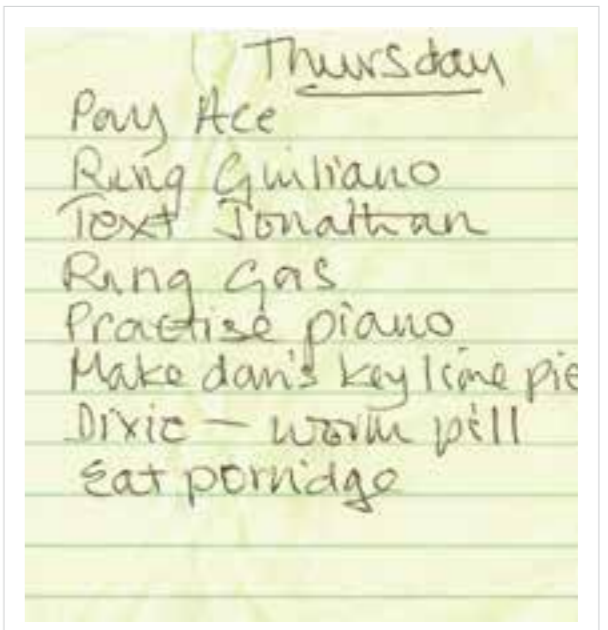 Thursday
Pay Ace
Ring Guiliano
Text Jonathan
Ring Gas
Practise piano
Make dan's key lime pie
Dixie – worm pill
Eat porridge